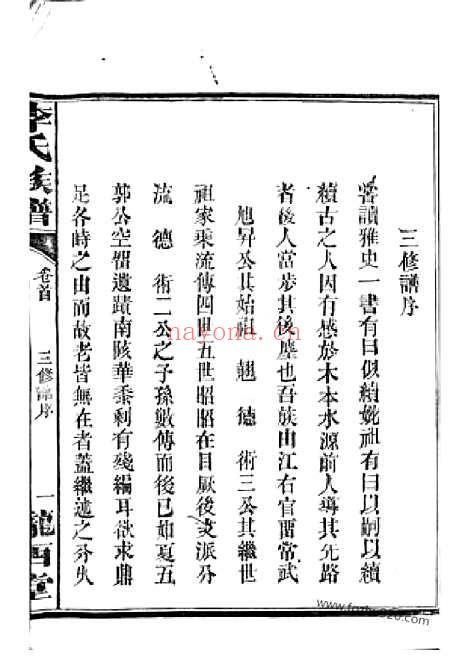 三修譜序
嘗讀雅史一書有曰似續妣祖有曰以嗣以續
續古之人因有感於木本水源前人導其先路
者後人當步其後塵也吾族由江右官畱當武
旭昇公其始祖 翹 德 術三公其繼世
祖家乘流傳四世五世昭昭在目厥後支派分
流 德 術二公之子孫數傳而後已如夏五
郭公空畱遺蹟南陔華黍剩有殘編耳欲求鼎
足各時之由而故老皆無在者蓋繼述之分失
李氏族譜
卷首
三修譜序
一
隴西堂
nayona.cn
www.fozhu920.com